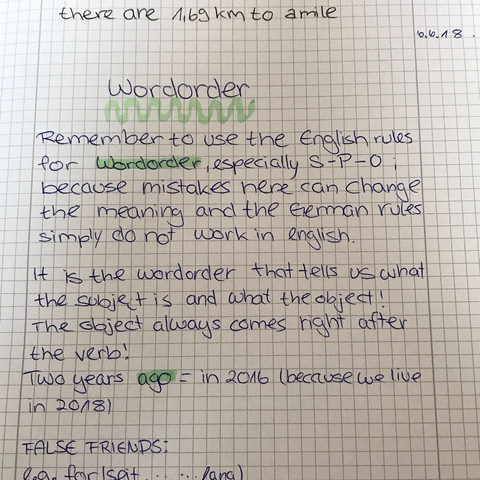 there are 1,69 km to a mile
6.6.18.
Wordorder
Remember to use the English rules
for wordorder, especially S-P-O ;
because mistakes here can change
the meaning and the German rules
simply do not work in english.
It is the wordorder that tells us what
the subject is and what the object!
The object always comes right after
the verb!
Two years ago = in 2016 (because we live
in 2018)
FALSE FRIENDS:
e.g. for/seit ... ... lang)